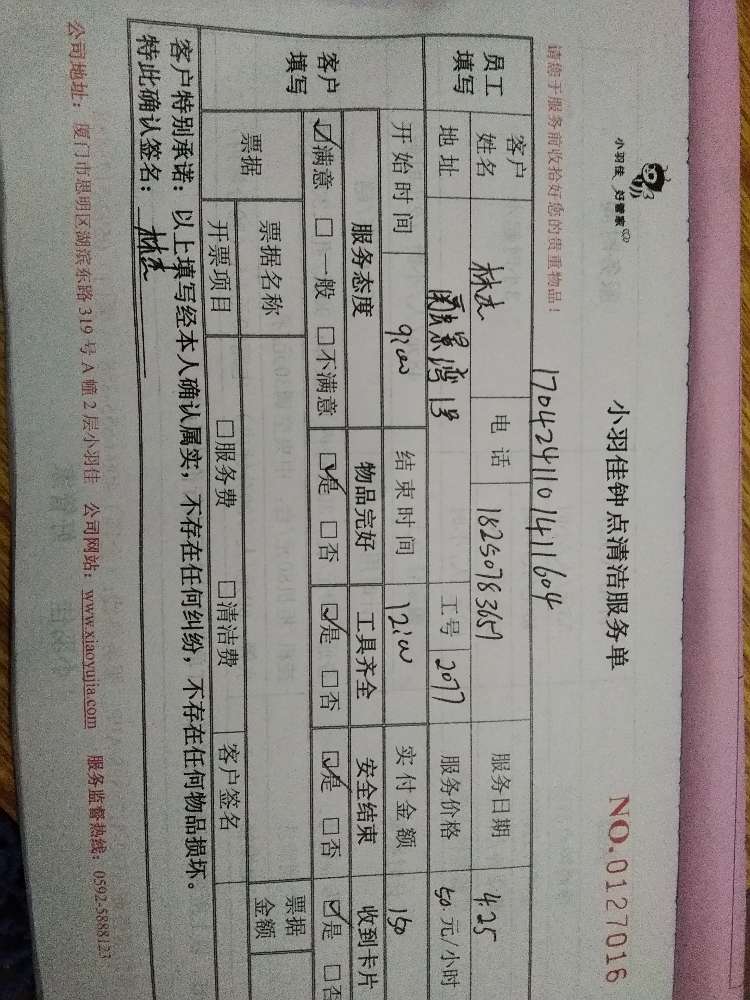 小羽佳 好管家
小羽佳钟点清洁服务单
NO.0127016
请您于服务前收拾好您的贵重物品！
1704241101411604
员工填写 客户姓名 林志 电话 18250783657 服务日期 4.25
地址 景湾1号 工号 2077 服务价格 50元/小时
开始时间 9:00 结束时间 12:00 实付金额 150
客户填写 服务态度 物品完好 工具齐全 安全结束 收到卡片
☑满意 □一般 □不满意 ☑是 □否 ☑是 □否 ☑是 □否 ☑是 □否
票据 票据名称 票据金额
开票项目 □服务费 □清洁费 客户签名
客户特别承诺：以上填写经本人确认属实，不存在任何纠纷，不存在任何物品损坏。
特此确认签名：林志
公司地址：厦门市思明区湖滨东路319号A幢2层小羽佳 公司网站：www.xiaoyujia.com 服务监督热线：0592-5888123